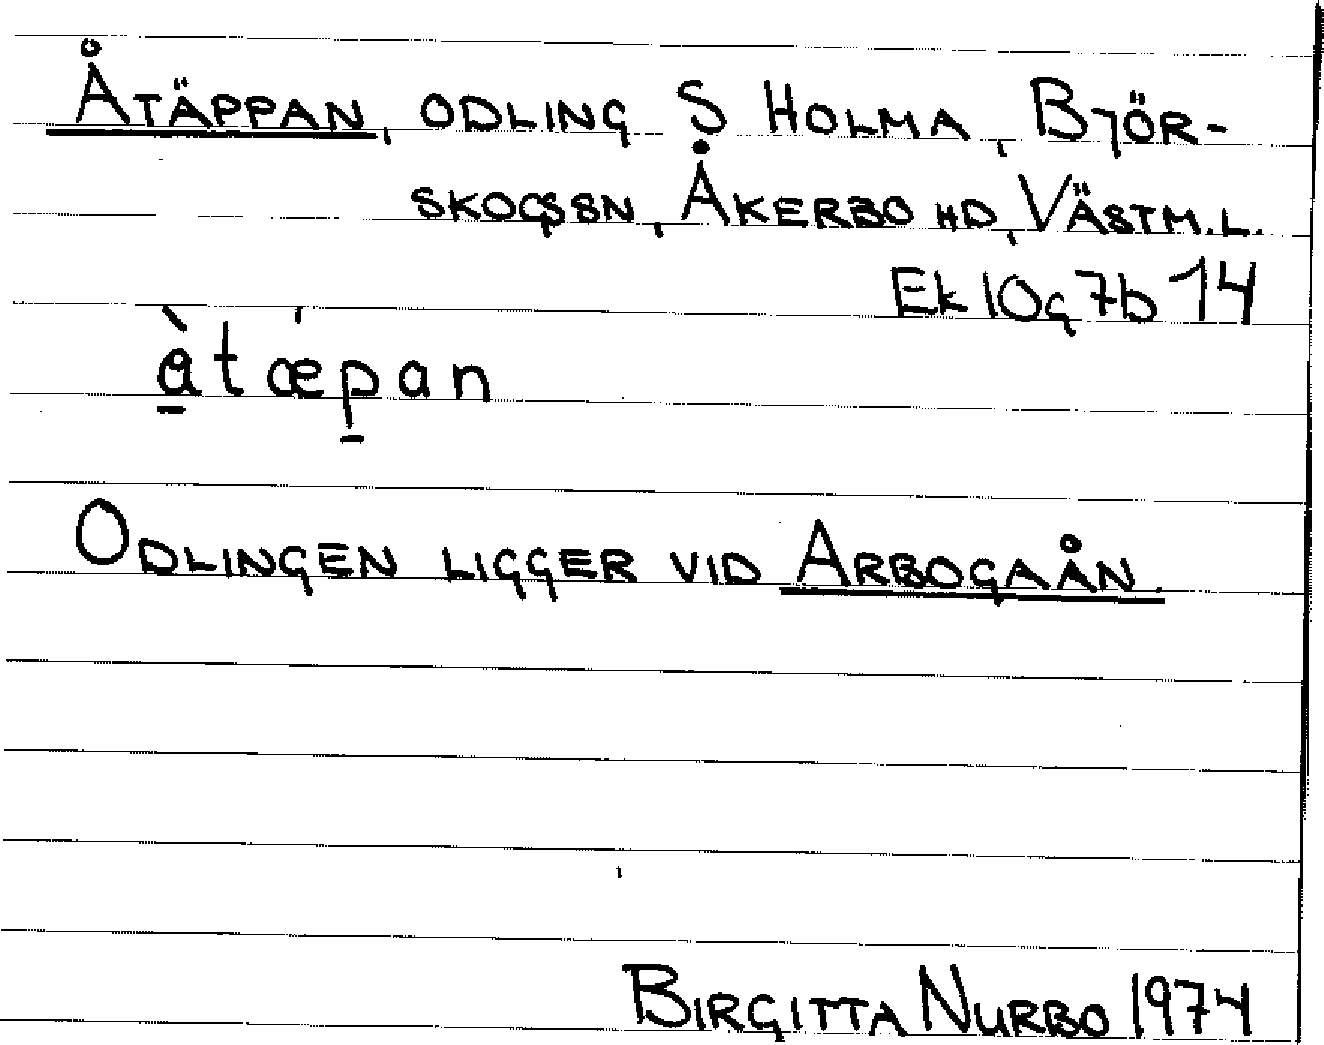 ÅTÄPPAN, ODLING S HOLMA, BJÖR-
SKOGSSN, ÅKERBO HD, VÄSTM.L.
Ek 10g 7b 14
àtǽpan
ODLINGEN LIGGER VID ARBOGAÅN.
BIRGITTA NURBO 1974